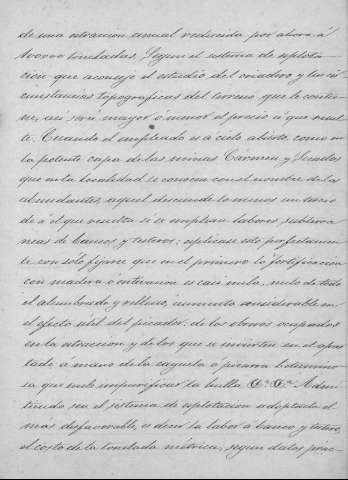 de una atraccion anual reducida por ahora á
100000 toneladas. Segun el sistema de esplota-
cion que aconseje el estudio del criadero y las cir-
cunstancias topograficas del terreno que le contie-
ne, asi será mayor ó menor el precio á que resul-
te. Cuando el empleado es á cielo abierto, como en
la potente capa de las minas Cármen y
que en la localidad se conocen con el nombre de las
abundantes, aquel desciende lo menos un tercio
de á el que resulta si se emplean labores subterra-
neas de bancos, y testeros: esplicase esto perfectamen-
te con solo fijarse que en el primero la fortificacion
con madera ó entivacion es casi nula, nulo de todo
el alumbrado y relleno, aumento considerable en
el efecto útil del picador: de los obreros ocupados
en la atraccion y de los que se invierten en el apar-
tado á mano de la cayuela ó pizarra bitumino-
sa que suele impurificar la hulla &ª &ª Admi-
tiendo sea el sistema de esplotacion adoptado el
mas desfavorable, es decir la labor á banco y testero,
el costo de la tonelada métrica, segun datos prac-